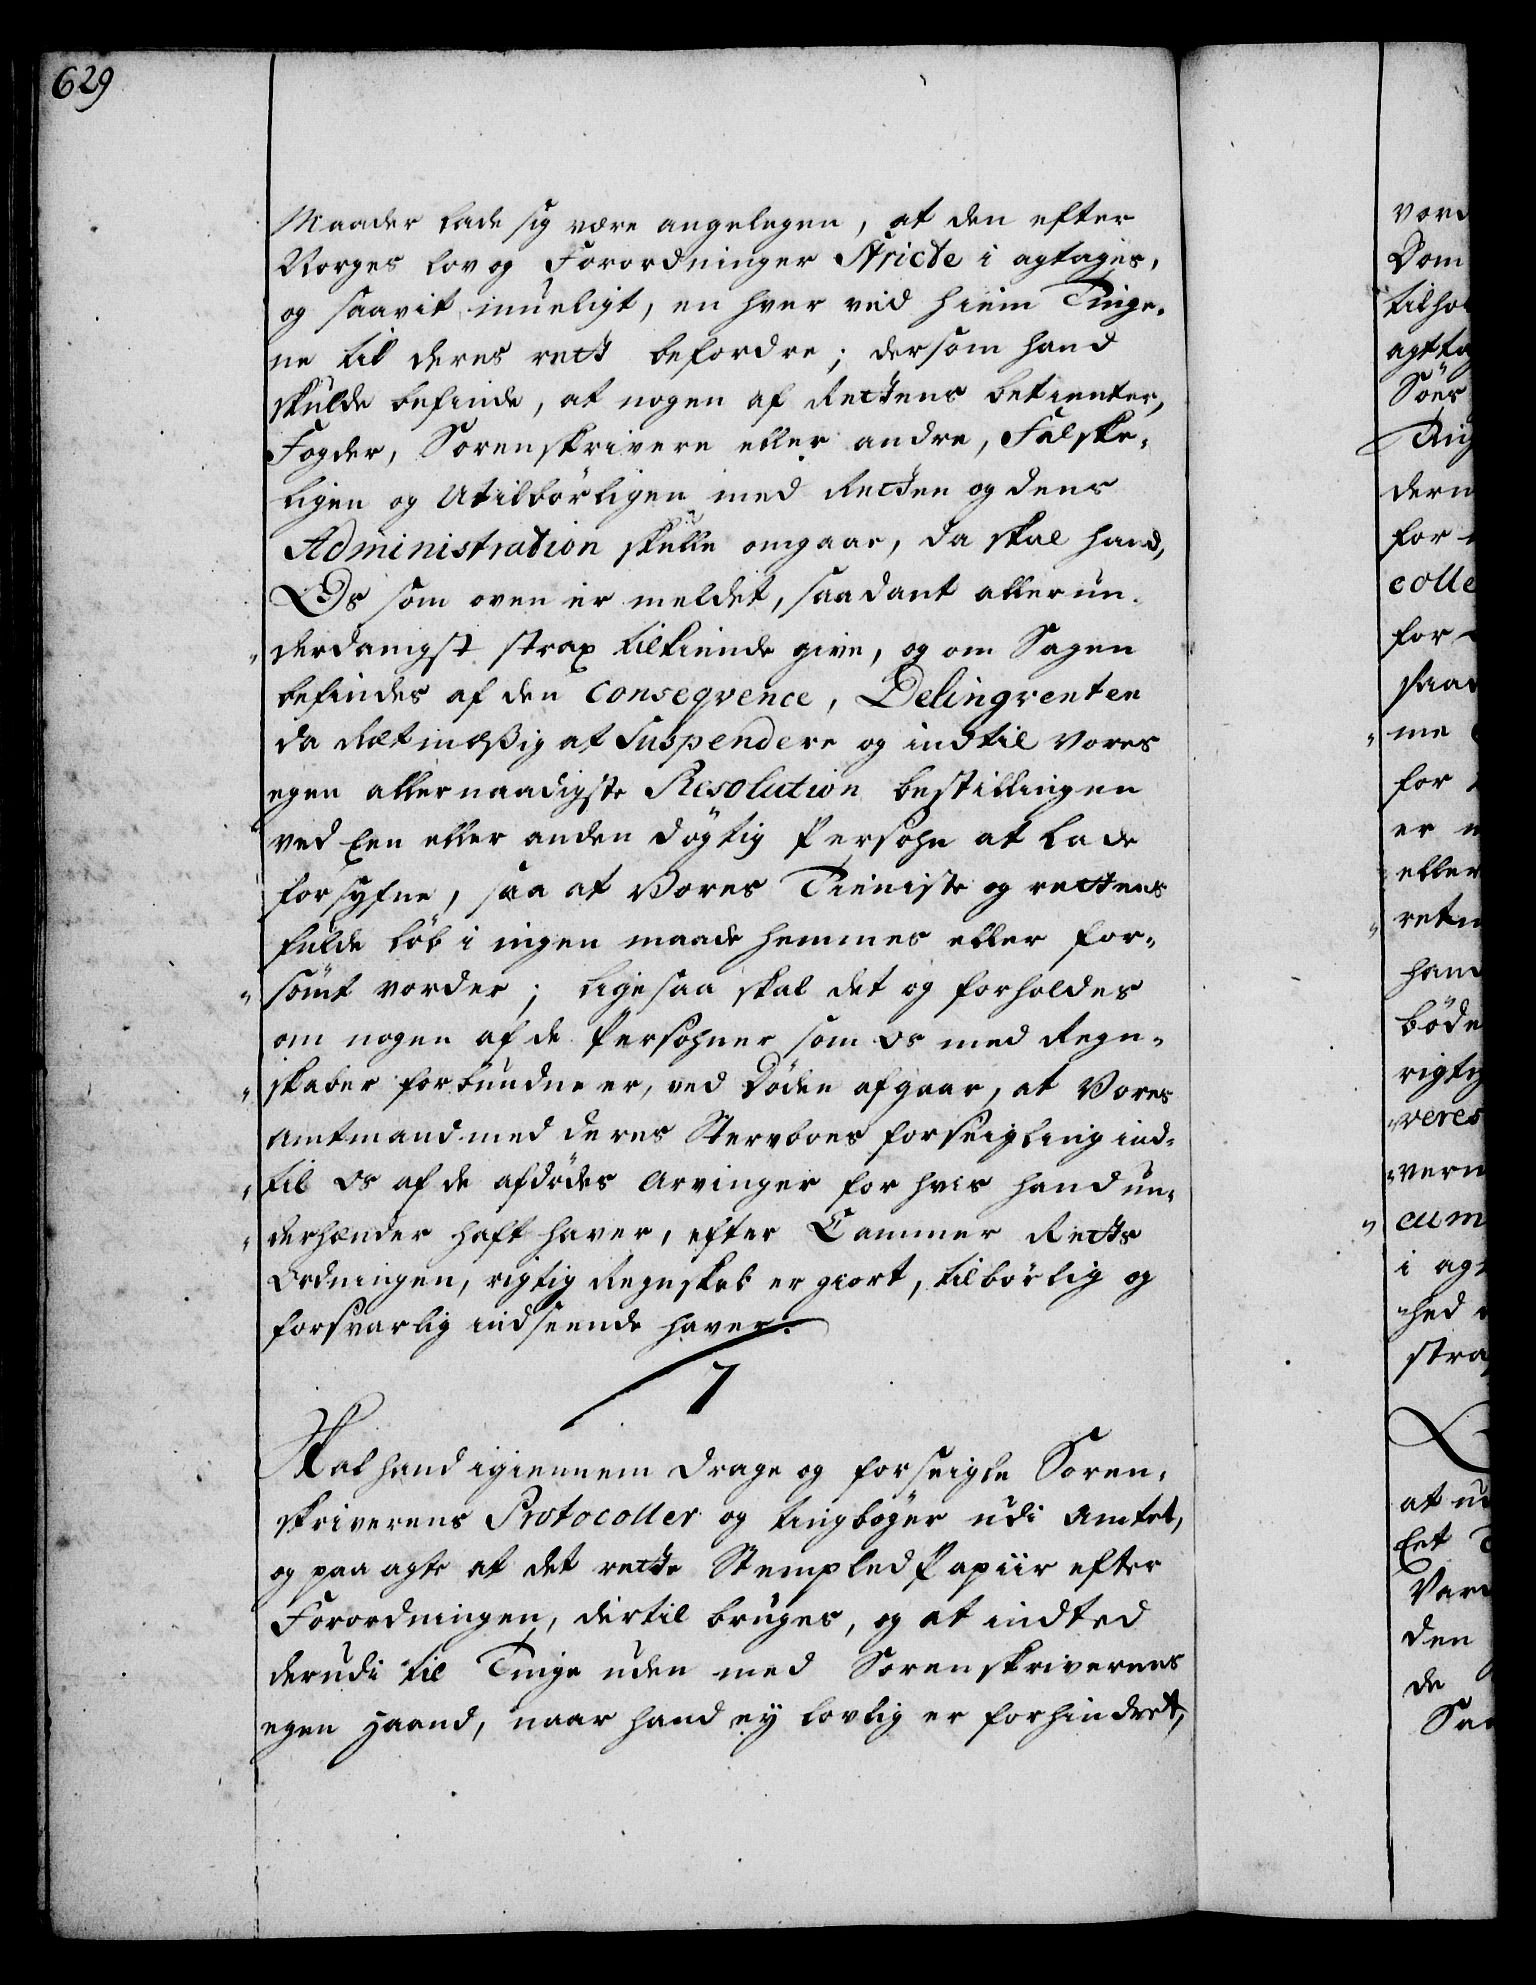 629
Maader lade sig være angelegen, at den efter
Norges lov og Forordninger Stricte i agtages,
og saavit mueligt, en hver ved hiem Tinge-
ne til deres rett befordre; dersom hand
skulde befinde, at nogen af Rettens betienter,
Fogder, Sorenskrivere eller andre, Falske-
ligen og Utilbörligen med Retten og dens
Administration skulle omgaae, da skal hand,
Os som oven er meldet, saadant allerun-
„derdanigst strax tilkiende give, og om Sagen
befindes af den Conseqvence, Delinqventen
da Retmæßig at Suspendere og indtil Vores
egen allernaadigste Resolution bestillingen
ved Een eller anden dögtig Persohn at lade
forsyfne, saa at Vores Tieniste og rettens
fulde löb i ingen maade hemmes eller for-
„sömt vorder; ligesaa skal det og forholdes
om nogen af de Persohner som Os med Regn-
„skaber forbundne er, ved Döden afgaar, at Vores
Amtmand med deres Stervboes forseigling ind-
„til Os af de afdödes Arvinger for hvis hand un-
„derhænder haft haver, efter Cammer Retts
Ordningen, rigtig Regnskab er giort, tilbörlig og
forsvarlig indseende haver.
7
Skal hand igiennem drage og forseigle Soren-
skriverens Protocoller og tingböger udi Amtet,
og paa agte at det rette Stempled Papiir efter
Forordningen, dertil bruges, og at indted
derudi til Tinge uden med Sorenskriverens
egen Haand, naar hand ey lovlig er forhindret,
vor
Dom
tilho
agtta
Söes
Ting
dern
for
colle
for
saa
„me
for
er
eller
„retn
han
böde
rigtig
„veres
„vern
„cum
i agt
„hed
stra
at u
Eet
Var
den
de
Saa